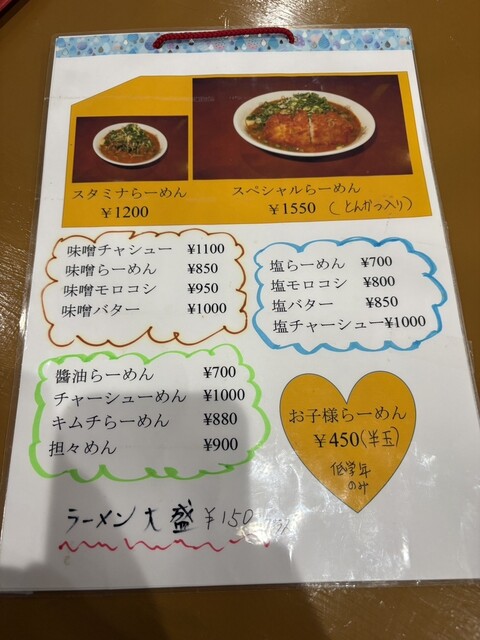 スタミナらーめん
￥1200
スペシャルらーめん
￥1550 (とんかつ入り)
味噌チャシュー ¥1100
味噌らーめん ¥850
味噌モロコシ ¥950
味噌バター ¥1000
塩らーめん ¥700
塩モロコシ ¥800
塩バター ¥850
塩チャーシュー ¥1000
醬油らーめん ¥700
チャーシューめん ¥1000
キムチらーめん ¥880
担々めん ¥900
お子様らーめん
￥450(半玉)
低学年
のみ
ラーメン 大盛 ￥150